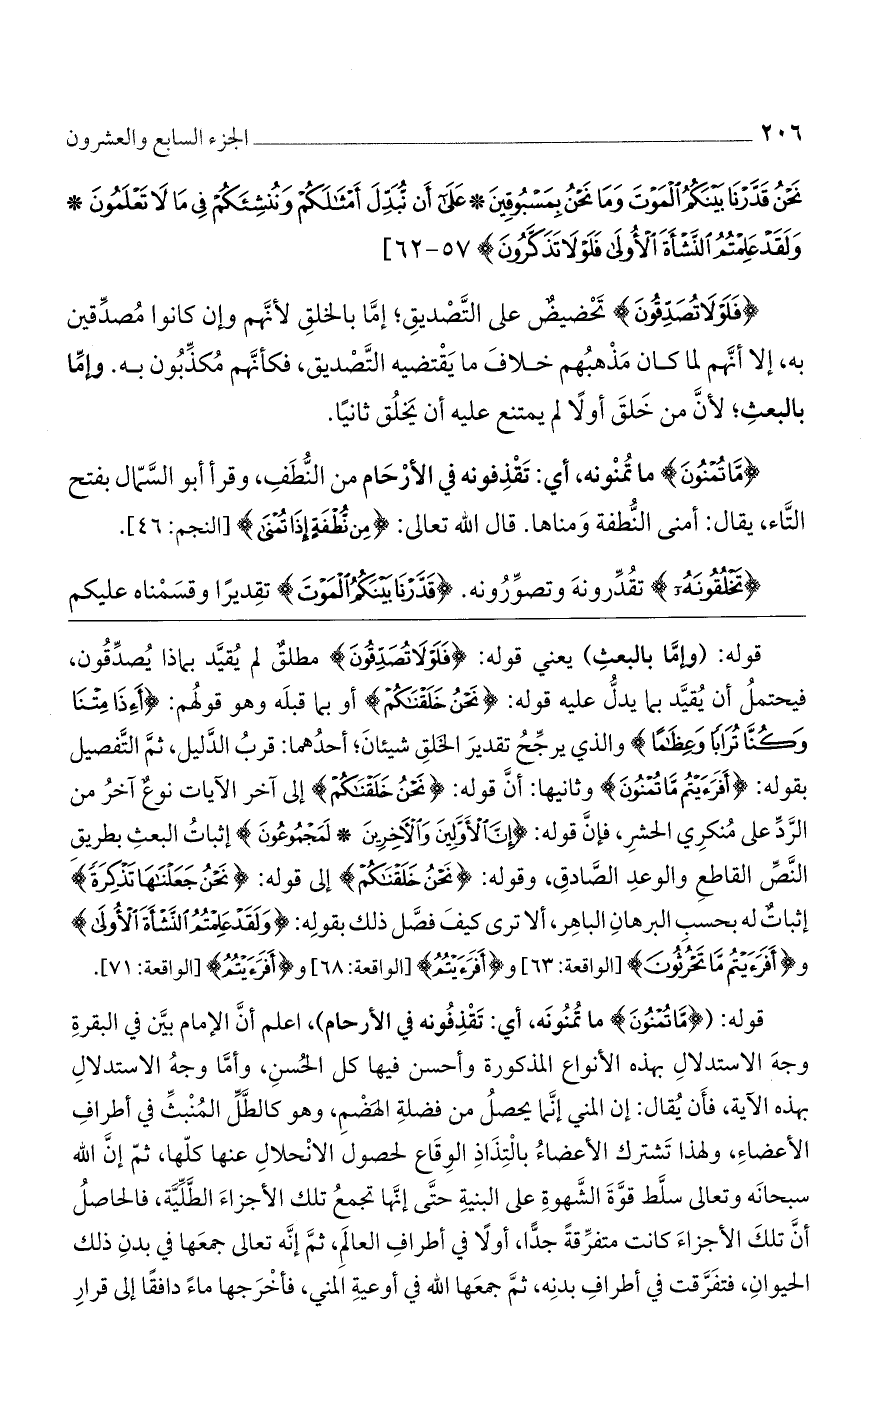 ٢٠٦ الجزء السابع والعشرون
نَحْنُ قَدَّرْنَا بَيْنَكُمُ ٱلْمَوْتَ وَمَا نَحْنُ بِمَسْبُوقِينَ * عَلَىٰٓ أَن نُّبَدِّلَ أَمْثَـٰلَكُمْ وَنُنشِئَكُمْ فِى مَا لَا تَعْلَمُونَ *
وَلَقَدْ عَلِمْتُمُ ٱلنَّشْأَةَ ٱلْأُولَىٰ فَلَوْلَا تَذَكَّرُونَ ﴾ ٥٧-٦٢]
﴿فَلَوْلَا تُصَدِّقُونَ﴾ تَحْضيضٌ على التَّصْديقِ؛ إمَّا بالخلقِ لأنَّهم وإن كانوا مُصدِّقين
به، إلا أنَّهم لما كان مَذْهبُهم خلافَ ما يَقْتضيه التَّصْديق، فكأنَّهم مُكذِّبُون به. وإمَّا
بالبعثِ؛ لأنَّ من خَلقَ أولًا لم يمتنع عليه أن يَخْلُق ثانيًا.
﴿مَّا تُمْنُونَ﴾ ما تُمْنُونه، أي: تَقْذِفونه في الأرْحَام من النُّطَفِ، وقرأ أبو السَّمّال بفتح
التَّاء، يقال: أمنى النُّطفة وَمناها. قال الله تعالى: ﴿مِن نُّطْفَةٍ إِذَا تُمْنَىٰ﴾ [النجم: ٤٦].
﴿تَخْلُقُونَهُۥٓ﴾ تقُدِّرونهَ وتصوِّرُونه. ﴿قَدَّرْنَا بَيْنَكُمُ ٱلْمَوْتَ﴾ تقِديرًا وقسَمْناه عليكم
قوله: (وإمَّا بالبعثِ) يعني قوله: ﴿فَلَوْلَا تُصَدِّقُونَ﴾ مطلقٌ لم يُقيَّد بماذا يُصدِّقُون،
فيحتملُ أن يُقيَّد بما يدلُّ عليه قوله: ﴿نَحْنُ خَلَقْنَـٰكُمْ﴾ أو بما قبلَه وهو قولُهم: ﴿أَءِذَا مِتْنَا
وَكُنَّا تُرَابًا وَعِظَـٰمًا﴾ والذي يرجِّحُ تقديرَ الخلقِ شيئان؛ أحدُهما: قربُ الدَّليل، ثمَّ التَّفصيل
بقوله: ﴿أَفَرَءَيْتُم مَّا تُمْنُونَ﴾ وثانيها: أنَّ قوله: ﴿نَحْنُ خَلَقْنَـٰكُمْ﴾ إلى آخر الآيات نوعٌ آخرُ من
الرَّدِّ على مُنكرِي الحشرِ، فإنَّ قوله: ﴿إِنَّ ٱلْأَوَّلِينَ وَٱلْآخِرِينَ * لَمَجْمُوعُونَ﴾ إثباتُ البعثِ بطريقِ
النَّصِّ القاطعِ والوعدِ الصَّادقِ، وقوله: ﴿نَحْنُ خَلَقْنَـٰكُمْ﴾ إلى قوله: ﴿نَحْنُ جَعَلْنَـٰهَا تَذْكِرَةً﴾
إثباتٌ له بحسبِ البرهانِ الباهِر، ألا ترى كيفَ فصَّل ذلك بقولِه: ﴿وَلَقَدْ عَلِمْتُمُ ٱلنَّشْأَةَ ٱلْأُولَىٰ﴾
و﴿أَفَرَءَيْتُم مَّا تَحْرُثُونَ﴾ [الواقعة: ٦٣] و﴿أَفَرَءَيْتُمُ﴾ [الواقعة: ٦٨] و﴿أَفَرَءَيْتُمُ﴾ [الواقعة: ٧١].
قوله: (﴿مَّا تُمْنُونَ﴾ ما تُمْنُونَه، أي: تَقْذِفُونه في الأرحام)، اعلم أنَّ الإمام بيَّن في البقرةِ
وجهَ الاستدلالِ بهذه الأنواع المذكورة وأحسن فيها كل الحُسنِ، وأمَّا وجهُ الاستدلالِ
بهذه الآية، فأن يُقال: إن المني إنَّما يحصلُ من فضلةِ الهَضْمِ، وهو كالطَّلِّ المُنْبثِّ في أطرافِ
الأعضاءِ، ولهذا تَشْترك الأعضاءُ بالْتِذاذِ الوِقَاع لحصولِ الانْحلالِ عنها كلِّها، ثمّ إنَّ الله
سبحانَه وتعالى سلَّط قوَّةَ الشَّهوةِ على البنيةِ حتَّى إنَّها تجمعُ تلك الأجزاءَ الطَّلِّيَّة، فالحاصلُ
أنَّ تلكَ الأجزاءَ كانت متفرِّقةً جدًّا، أولًا في أطرافِ العالَم، ثمَّ إنَّه تعالى جمعَها في بدنِ ذلك
الحيوانِ، فتفَرَّقت في أطرافِ بدنِه، ثمَّ جمعَها الله في أوعيةِ المني، فأخْرَجها ماءً دافقًا إلى قرارِ